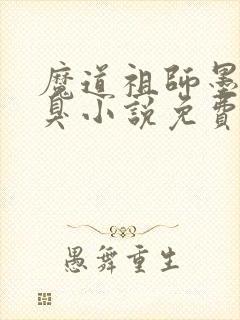 魔道祖師墨
臭小說免費
愚舞重生